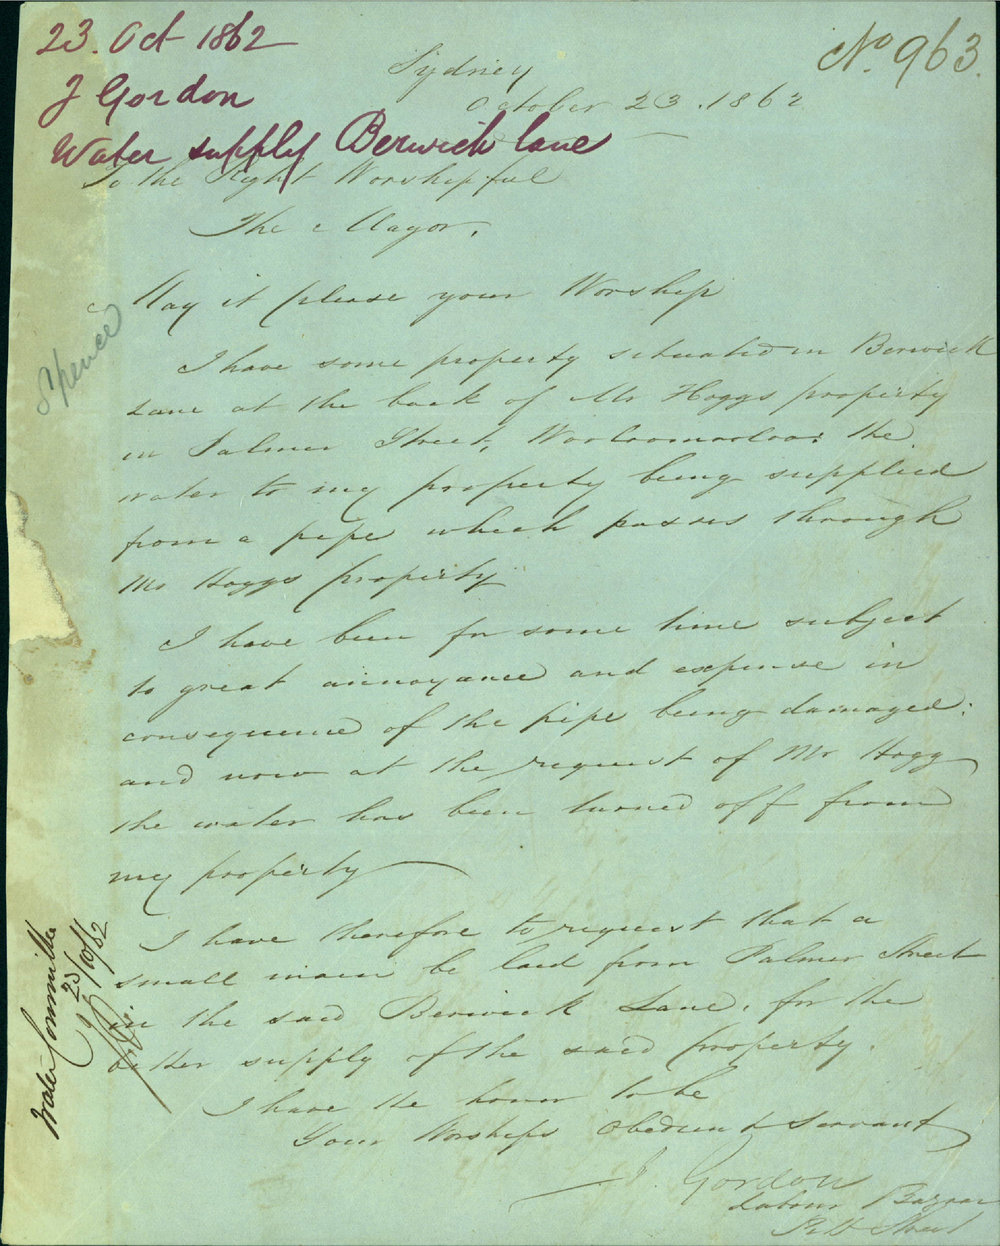 23. Oct 1862
J Gordon
Water supply Berwick lane
No. 963.
Sydney
October 23. 1862
To the Right Worshipful
The Mayor.
May it please your Worship
I have some property situated in Berwick
Lane at the back of Mr Hoggs property
in Palmer Street, Woolloomooloo: the
water to my property being supplied
from a pipe which passes through
Mr Hoggs property
I have been for some time subject
to great annoyance and expense in
consequence of the pipe being damaged:
and now at the request of Mr Hogg
the water has been turned off from
my property
I have therefore to request that a
small main be laid from Palmer Street
in the said Berwick Lane, for the
better supply of the said property.
I have the honor to be
Your Worships obedient Servant
J. Gordon
Labour Bazaar
Pitt Street
Spence
Water Committee
23/10/62